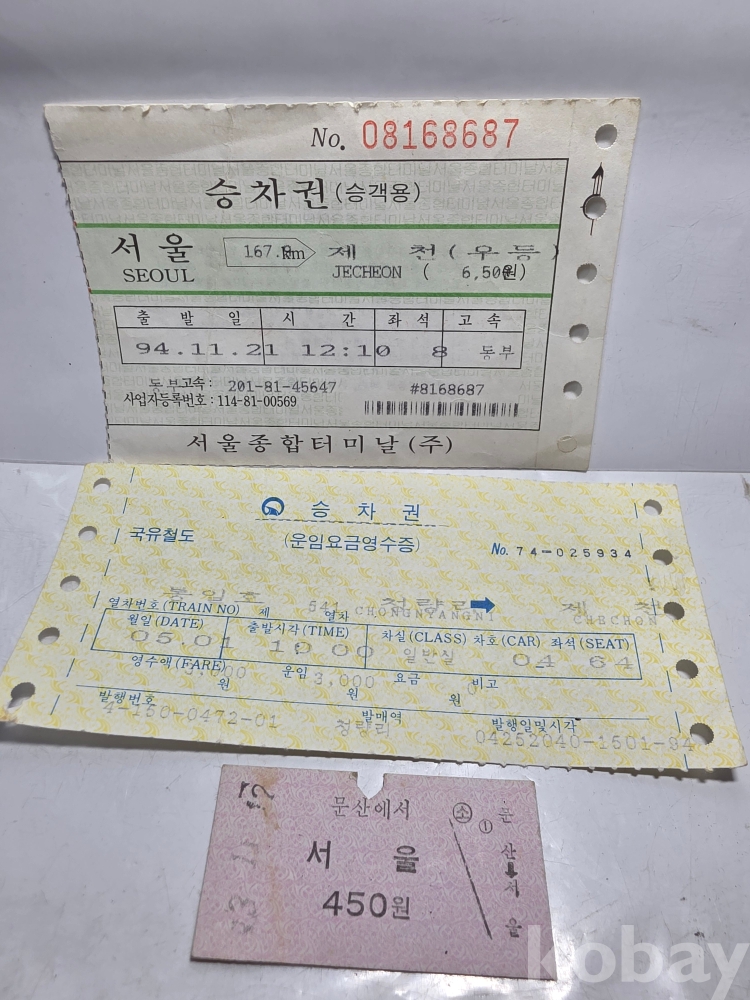 No. 08168687
승차권 (승객용)
서울 167.8km 제 천 (우등)
SEOUL JECHEON ( 6,500원)
출 발 일 시 간 좌 석 고 속
94.11.21 12:10 8 동부
동부고속: 201-81-45647 #8168687
사업자등록번호: 114-81-00569
서울종합터미날(주)
승 차 권
국유철도 (운임요금영수증) No. 74-025934
통일호 청량리 제 천
열차번호(TRAIN NO) 제 541 열차 CHONGNYANGNI CHECHON
월일(DATE) 출발시각(TIME) 차실(CLASS) 차호(CAR) 좌석(SEAT)
05.01 10:00 일반실 04 64
영수액(FARE) 3,000원 운임 3,000원 요금 0원 비고
발행번호 발매역 발행일및시각
4-150-0472-01 청량리 04252040-1501-94
문산에서
서 울
450원
소 ①
문산
서울
kobay